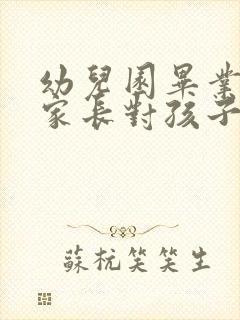 幼兒園畢業
家長對孩子
蘇杬笑笑生